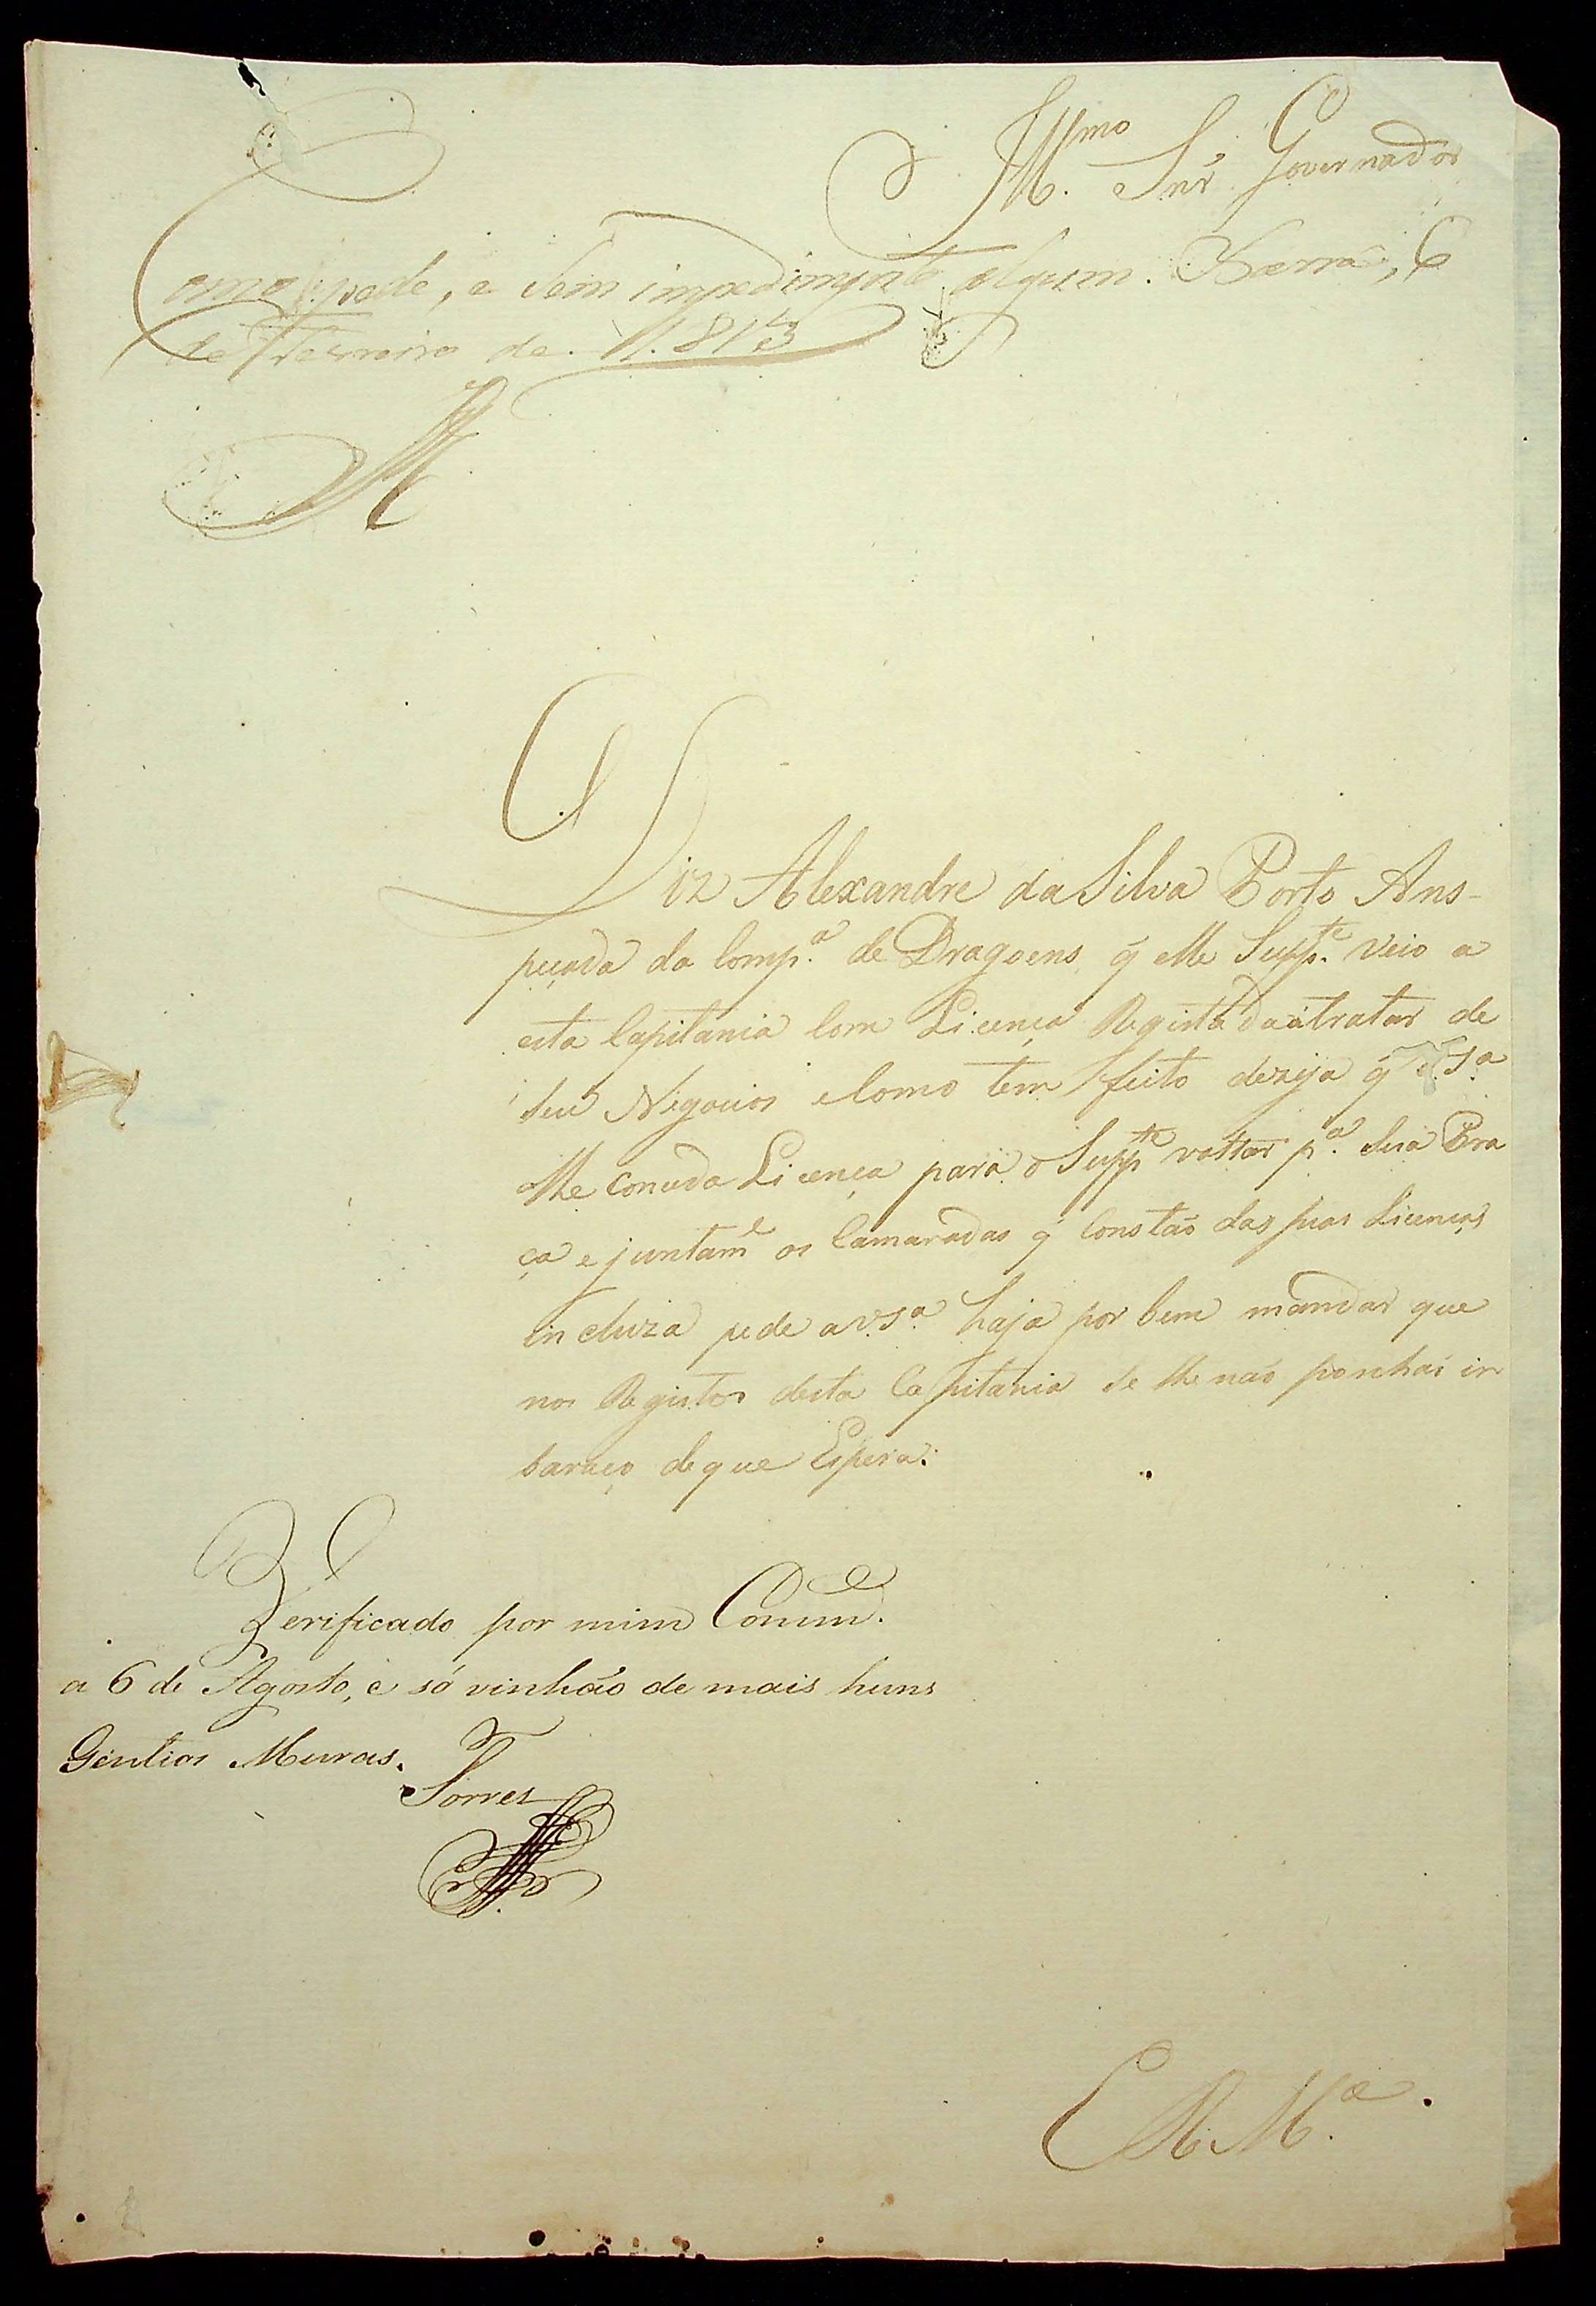 Ill.mo Snr. Governador
Como pede, e sem impedimento algum. Barra, 6
de Fevereiro de 1.813
Diz Alexandre da Silva Porto Ans-
peçada da Comp.a de Dragoens q̃ elle Supp.te veio a
esta Capitania Com Licença Registada a tratar de
seus Negocios e Como tem feito dezeja q̃ V.S.a
lhe conceda Licença para o Supp.te voltar p.a sua Pra
ça e juntam.e os Camaradas q̃ Constaõ das suas Licenças
incluza pede a V.S.a haja por bem mandar que
nos Registos desta Capitania se lhe naõ ponhaõ in
baraço de que Espera.
Verificado por mim Comm.e
a 6 de Agosto, e só vinhão de mais huns
Gentios Muras.
Torres
E R M.ce